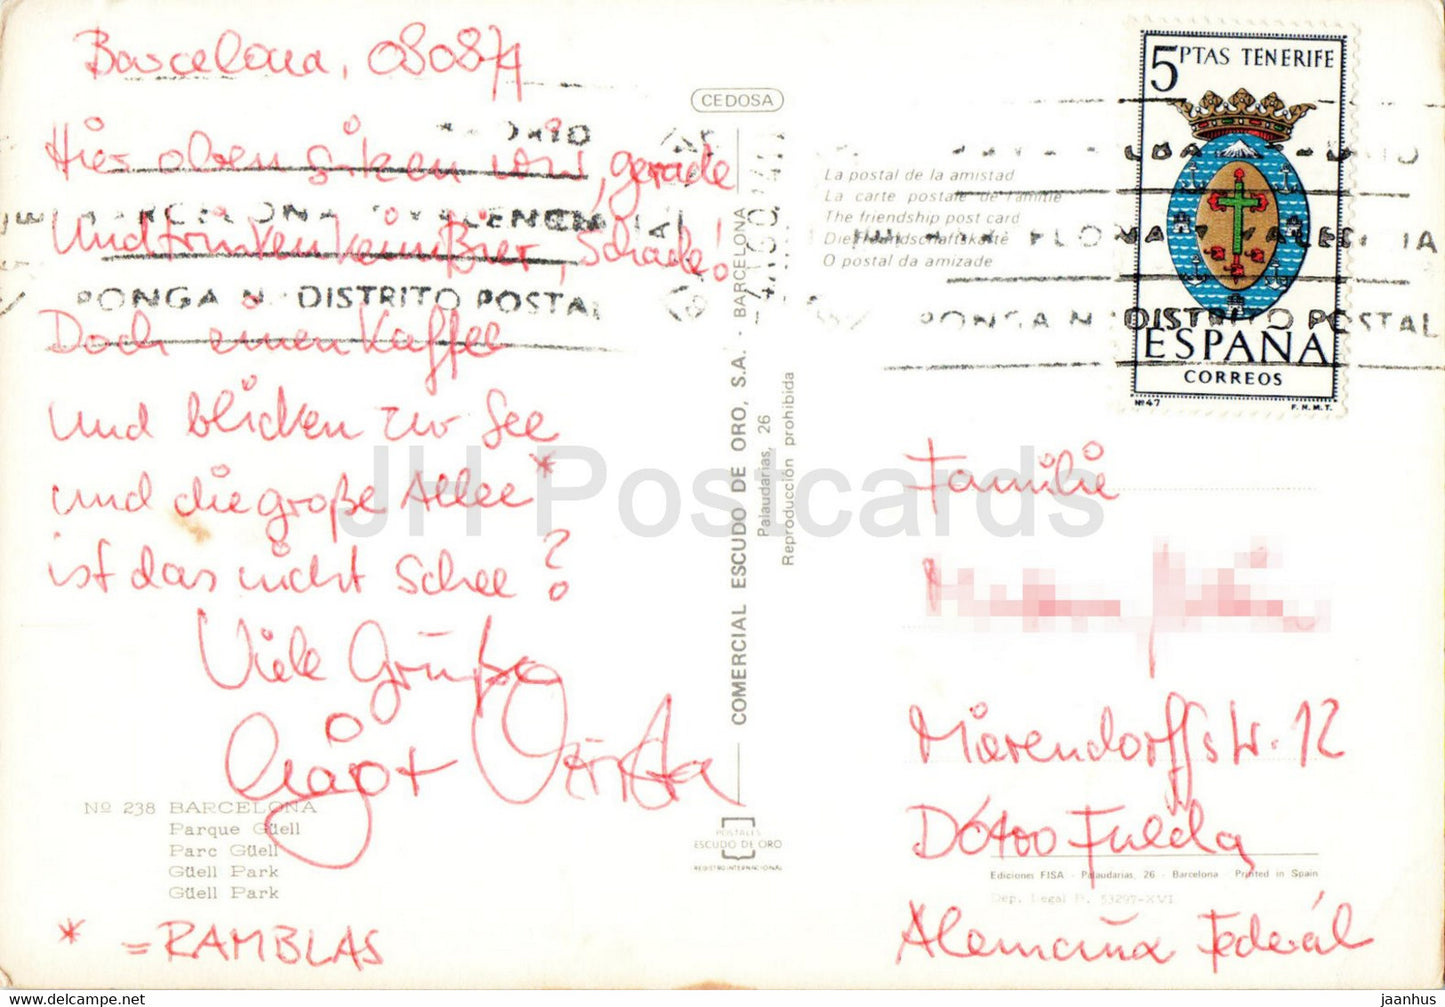 Barcelona, 080874
Hier oben sitzen wir, gerade
Und trinken kein Bier, Schade!
Doch einen Kaffee
und blicken zur See
und die große Allee*
ist das nicht Schee?
Viele Grüße
* = RAMBLAS
Nº 238 BARCELONA
Parque Güell
Parc Güell
Güell Park
Güell Park
BARCELONA VALENCIA
PONGA Nº DISTRITO POSTAL
CEDOSA
COMERCIAL ESCUDO DE ORO, S.A. - BARCELONA
Palaudarias, 26
Reproducción prohibida
POSTALES
ESCUDO DE ORO
REGISTRO INTERNACIONAL
La postal de la amistad
La carte postale de l'amitie
The friendship post card
Die Freundschaftskarte
O postal da amizade
5 PTAS TENERIFE
ESPAÑA
CORREOS
Nº 47 F.N.M.T.
PONGA Nº DISTRITO POSTAL
Familie
Mierendorffstr. 12
D6400 Fulda
Ediciones FISA - Palaudarias, 26 - Barcelona - Printed in Spain
Dep. Legal B. 53297-XVI
Alemaña Federál
JH Postcards
jaanhus